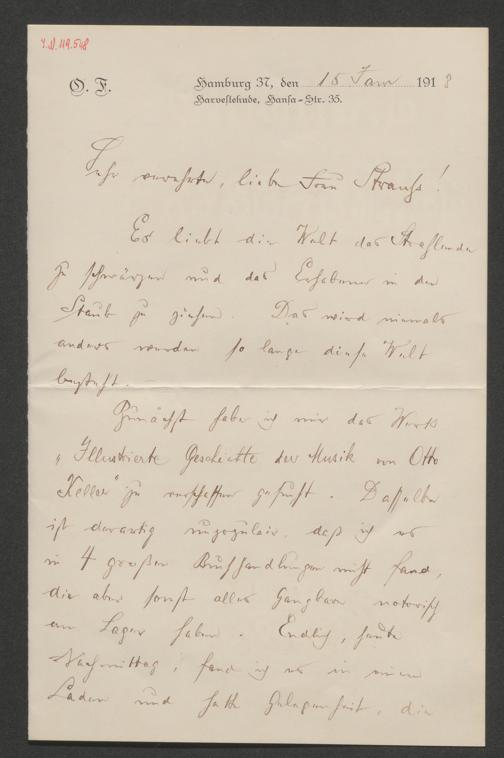 I.N. 119.548
O. F.
Hamburg 37, den 15 Jan 1918
Harvestehude, Hansa-Str. 35.
Sehr verehrte, liebe Frau Strauss!
Es liebt die Welt das Strahlende
zu schwärzen und das Erhabene in den
Staub zu ziehen. Das wird niemals
anders werden so lange diese Welt
besteht.
Zunächst habe ich mir das Werk
„Illustrierte Geschichte der Musik von Otto
Keller" zu verschaffen gesucht. Dasselbe
ist derartig, daß ich es
in 4 großen Buchhandlungen nicht fand,
die aber sonst alles Gangbare notorisch
am Lager haben. Endlich, heute
Nachmittag, fand ich es in einem
Laden und hatte Gelegenheit, die